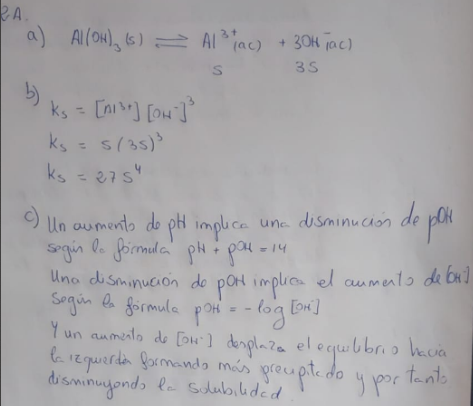 2A.
a) Al(OH)₃(s) ⇌ Al³⁺(ac) + 3OH⁻(ac)
s 3s
b)
Ks = [Al³⁺][OH⁻]³
Ks = s(3s)³
Ks = 27s⁴
c) Un aumento de pH implica una disminución de pOH
según la fórmula pH + pOH = 14
Una disminución de pOH implica el aumento de [OH⁻]
según la fórmula pOH = -log[OH⁻]
Y un aumento de [OH⁻] desplaza el equilibrio hacia
la izquierda formando más precipitado y por tanto
disminuyendo la solubilidad.